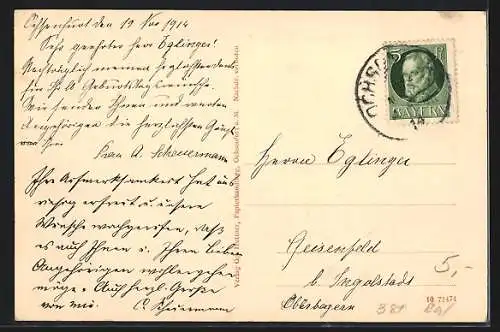 Ochsenfurt den 19 Nov 1914
Sehr geehrter Herr Eglinger!
Nachträglich meinen herzlichsten Dank
für Ihre Geburtstagswünsche.
Wir senden Ihnen und werten
Angehörigen die herzlichsten Grüße
von Ihr
Frau A. Scheuermann
Ihre Aufmerksamkeit hat un
erfreut u. unsere
Wünsche, daß
es auch Ihnen u. Ihren Lieben
Angehörigen wohlergehen
möge. Auch herzl. Grüße
von mir. C. Scheuermann
Verlag Papierhandlung, Ochsenfurt a. M.
OCHS
5
BAYERN
14
Herrn Eglinger
Geisenfeld
b. Ingolstadt
Oberbayern
5,-
381
10 72474